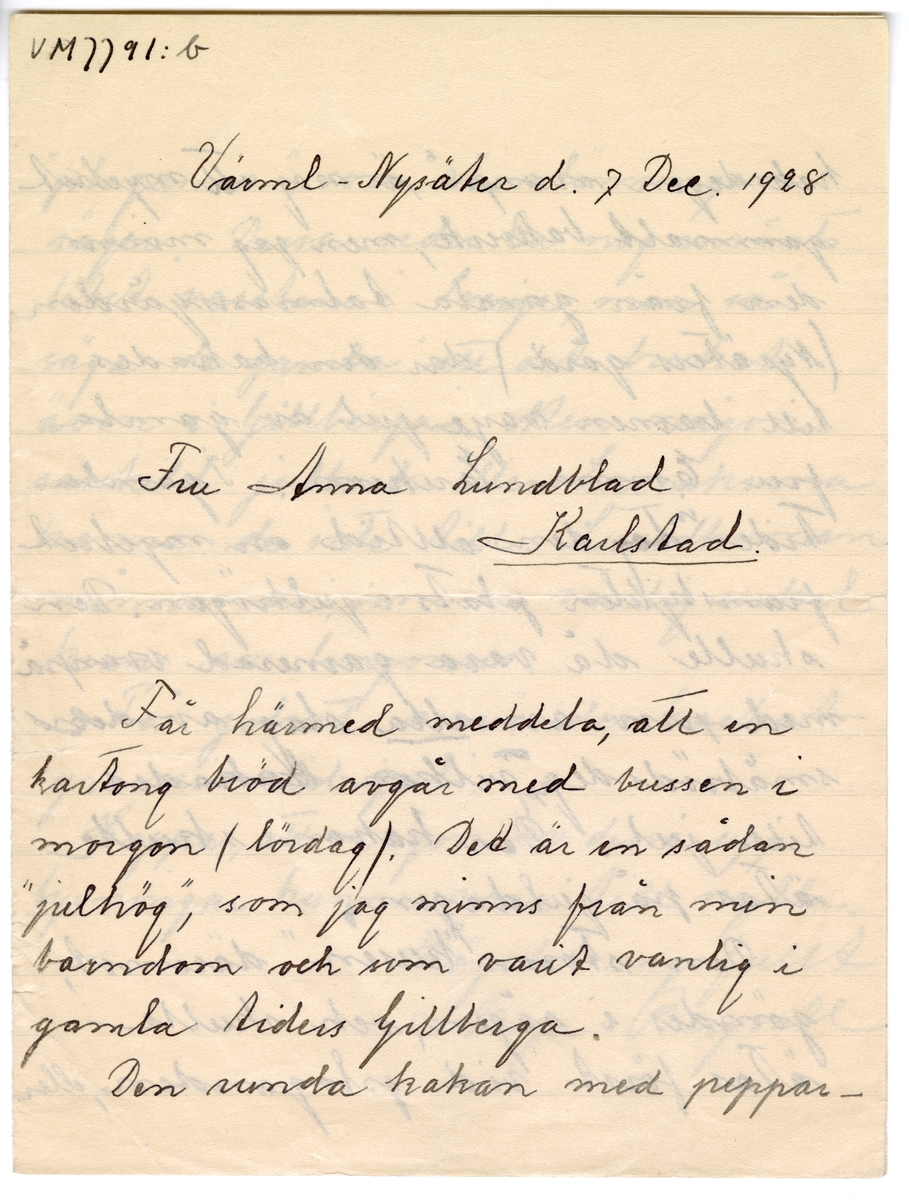 VM7791:b
Värml-Nysäter d. 7 Dec. 1928
Fru Anna Lundblad
Karlstad.
Får härmed meddela, att en
kartong bröd avgår med bussen i
morgon (lördag). Det är en sådan
"julhög", som jag minns från min
barndom och som varit vanlig i
gamla tiders Gillberga.
Den runda kakan med peppar-